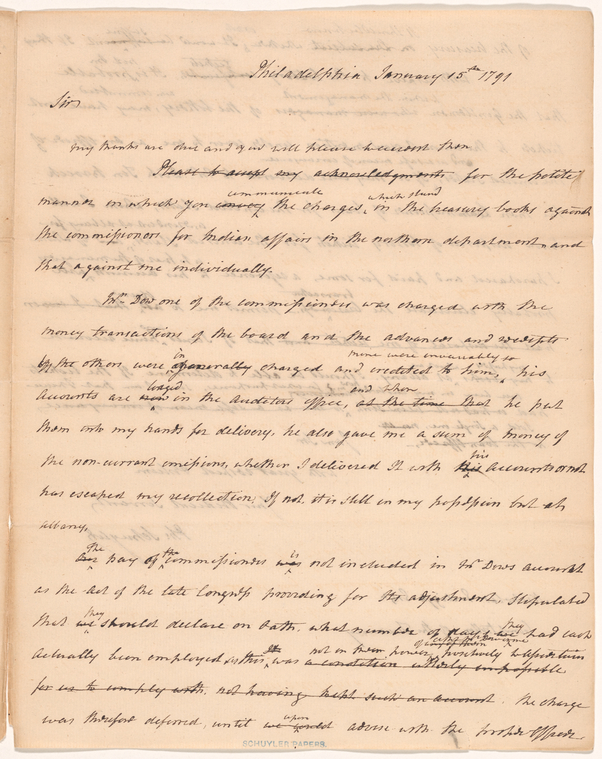 Philadelphia January 15th 1791
Sir
My thanks are due and you will please to accept them
Please to accept my acknowledgments for the polite
communicate which stand
manner in which you convey the charges, in the treasury books against
the commissioners for Indian affairs in the northern department, and
that against me individually.
Mr. Dow one of the commissioners was charged with the
money transactions of the board and the advances and receipts
in none were invariably so
by the others were generally charged and credited to him, his
and when
accounts are now in the auditors office, at the time that he put
them into my hands for delivery, he also gave me a sum of money of
his
the non-current emissions, whether I delivered It with this accounts or not
has escaped my recollection, If not, it is still in my possession but at
albany.
The the is
our pay of commissioners was not included in Mr Dows account
as the act of the late Congress providing for Its adjustment stipulated
they they
that we should declare on Oath, what number of days we had each
of
not in power, positively to ascertain
actually been employed, this was a condition utterly impossible
for us to comply with, not having kept such an account. The charge
upon
was therefore deferred, until we could advise with the proper Officers
SCHUYLER PAPERS